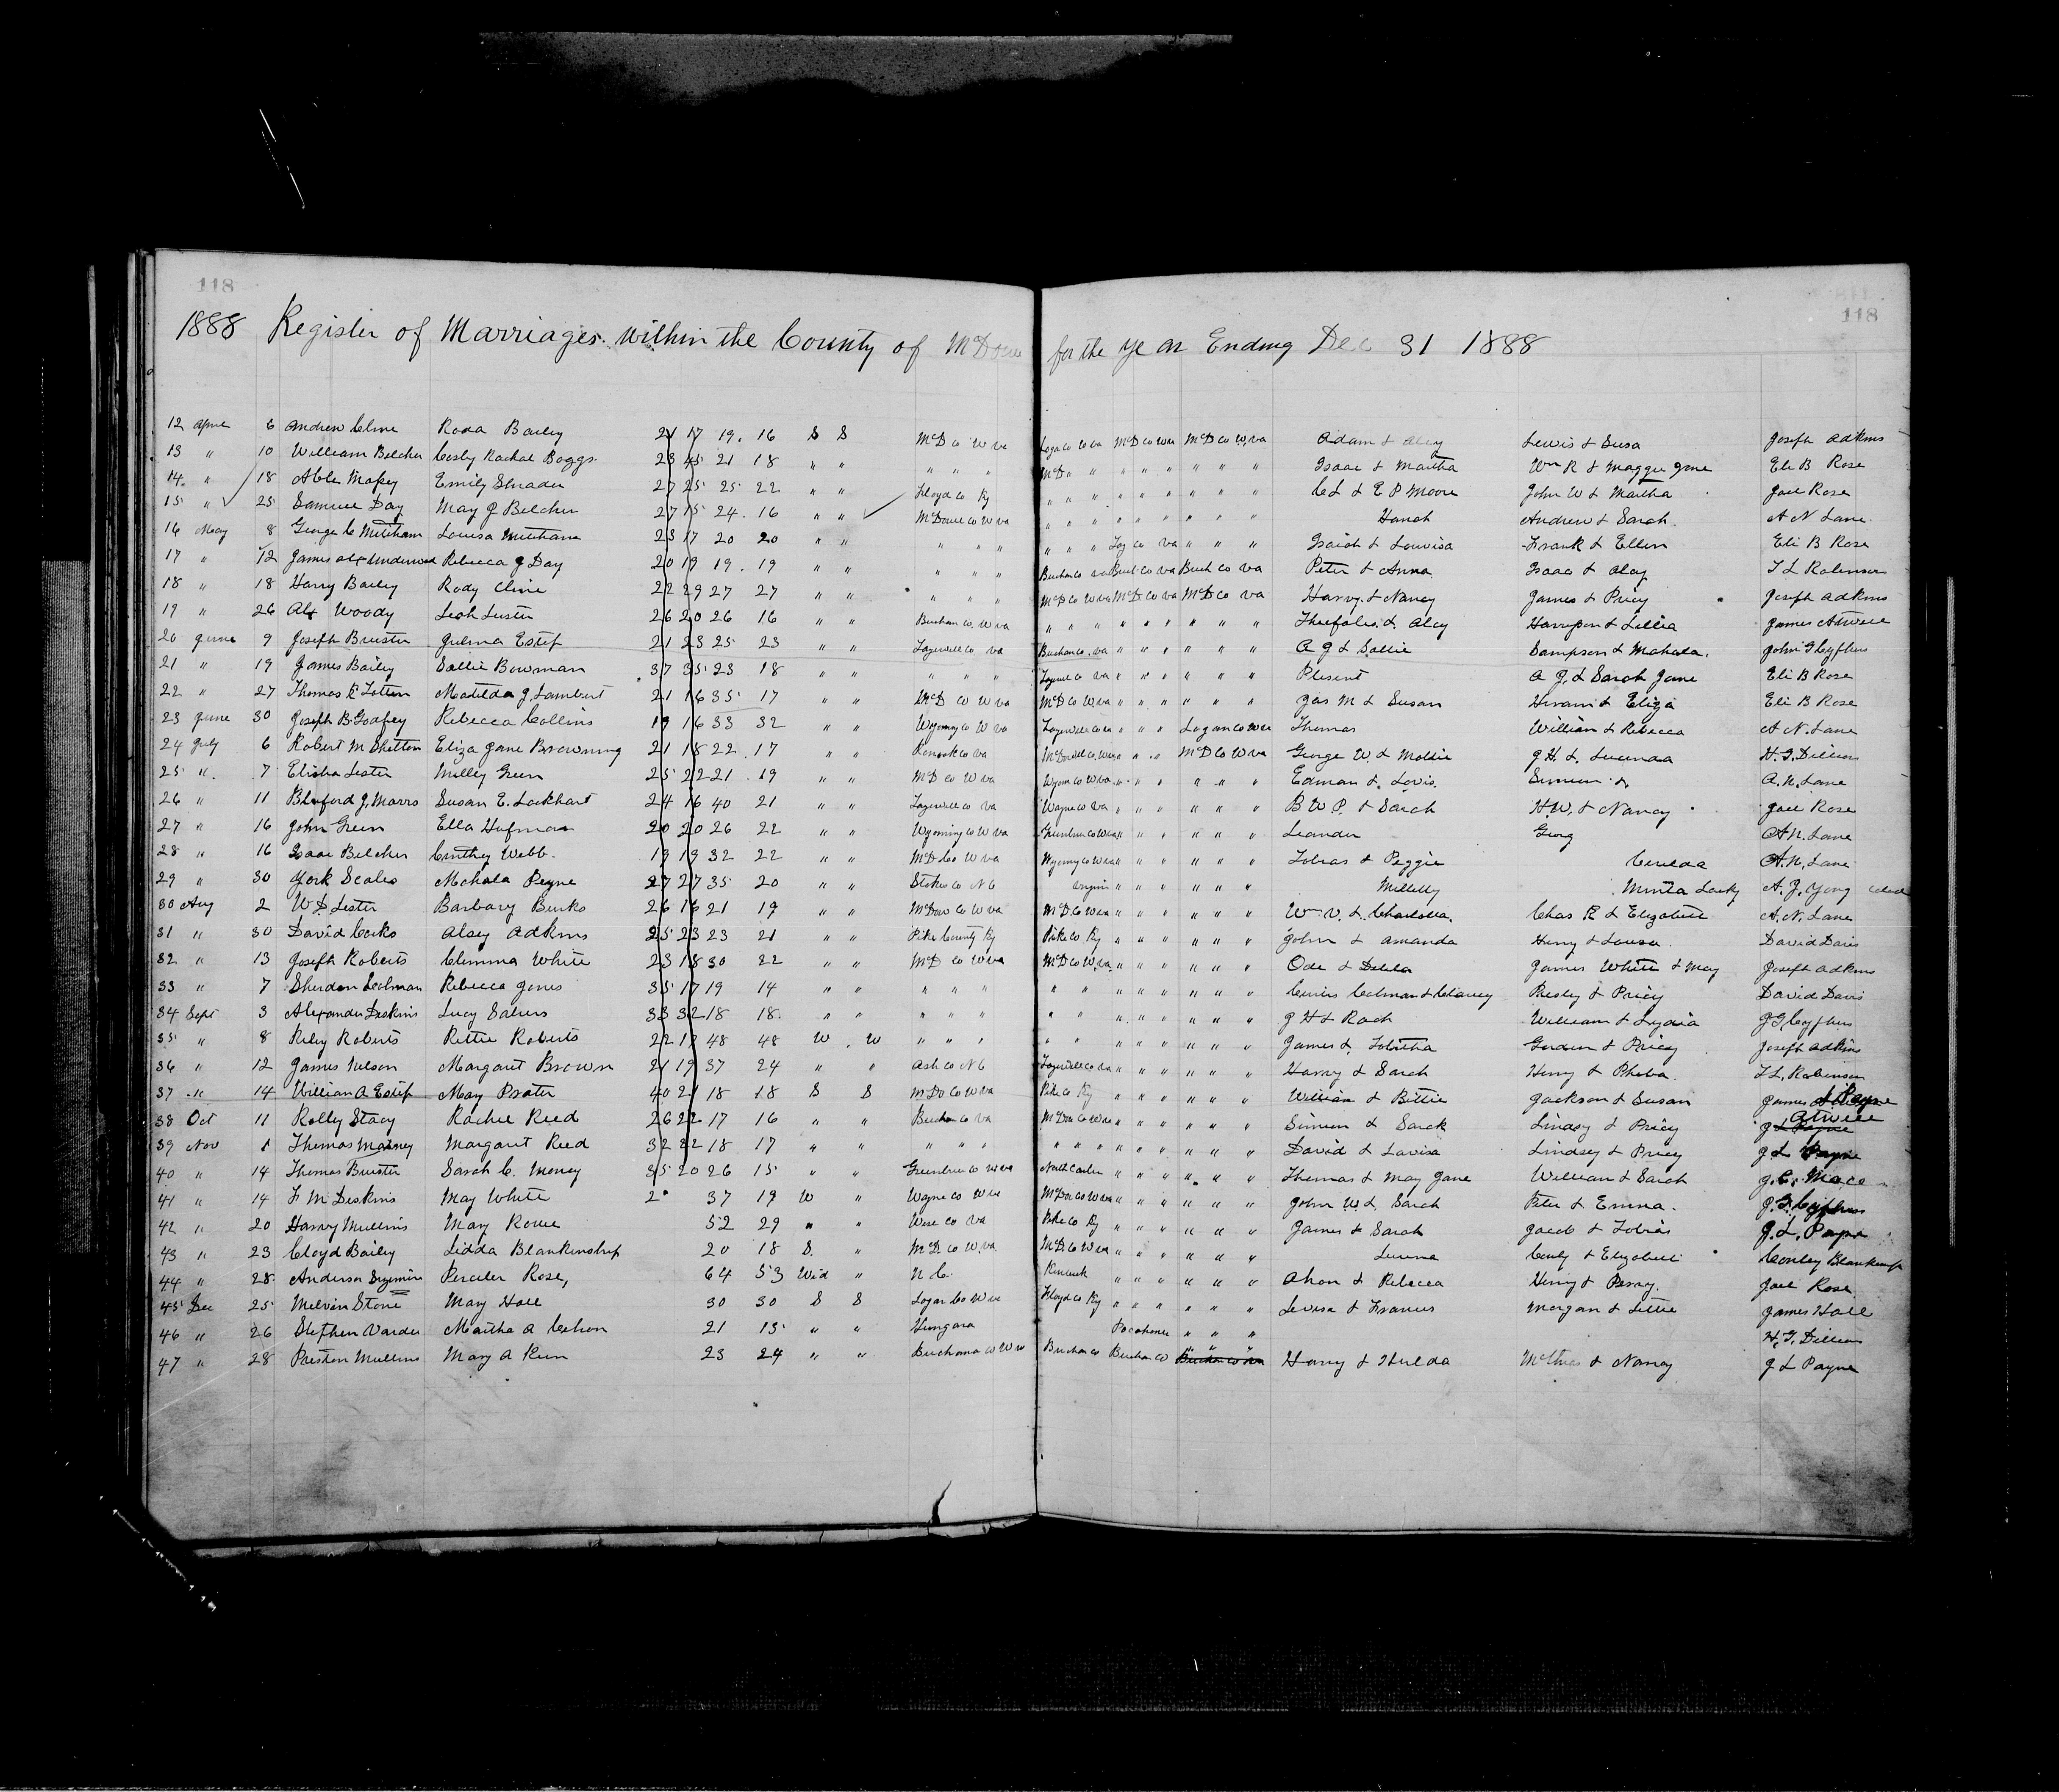 118
118
1888 Register of Marriages within the County of McDow for the year Ending Dec 31 1888
12 April 6 Andrew Cline Roda Bailey 21 17 19. 16 S S McD Co W va Logan Co W va McD Co W va McD Co W va Adam & Alcy Lewis & Susa Joseph Adkins
13 " 10 William Belcher Cosby Rachal Boggs 23 45 21 18 " " " " " McD " " " " " " " " Isaac & Martha Wm R & Maggie Jane Eli B Rose
14. " 18 Able Maxey Emily Shrader 27 25 25 22 " " Floyd Co Ky " " " " " " " " " C L & E P Moore John W & Martha Joel Rose
15 " 25 Samuel Day May J Belcher 27 15 24. 16 " " McDowel Co W va " " " " " " " " " Hanah Andrew & Sarah A N Lane
16 May 8 George C Mitcham Louisa Mitcham 23 17 20 20 " " " " " " " " Taz Co va " " " Isaiah & Louvisa Frank & Ellen Eli B Rose
17 " 12 James Alex Underwood Rebecca J Day 20 19 19. 19 " " " " " Buchan Co va Buch Co va Buch Co va Peter & Anna Isaac & Alcy T L Robinson
18 " 18 Harry Bailey Rody Cline 22 29 27 27 " " " " " McD Co W va McD Co va McD Co va Harvy & Nancy James & Pricy Joseph Adkins
19 " 26 Alx Woody Leah Luster 26 20 26 16 " " Buchan Co. W va " " " " " " " " " & Alcy Harrison & Lillia James Atwell
20 June 9 Joseph Bruster Julina Estep 21 23 25 23 " " Tazewell Co va Buchan Co. va " " " " " " A J & Sallie Sampson & Mahala. John G Cyphers
21 " 19 James Bailey Sallie Bowman 37 35 23 18 " " " " " Tazwel Co va " " " " " " Plesent A J. & Sarah Jane Eli B Rose
22 " 27 Thomas R Totten Matilda J. Lambert 21 16 35 17 " " McD Co W va McD Co W va " " " " " " Jas M & Susan Hiram & Eliza Eli B Rose
23 June 30 Joseph B. Godfrey Rebecca Collins 19 16 33 32 " " Wyomy Co W va Tazewell Co va " " " Logan Co W va Thomas William & Rebecca A N. Lane
24 July 6 Robert M Shelton Eliza Jane Browning 21 18 22. 17 " " Ronook Co va McDowell Co. W va " " McD Co W va George W. & Mollie J H. &. Lucinda H. G. Dillion
25 ". 7 Elisha Lester Milley Green 25 22 21. 19 " " McD Co W va Wyom Co W va " " " " " " Edman &. Lovis Simeon & A. N. Lane
26 " 11 Bluford J. Morris Susan E. Lockhart 24 16 40 21 " " Tazewell Co va Wayne Co va " " " " " " B W P. & Sarah H. W. & Nancy Joel Rose
27 " 16 John Green Ella Hufman 20 20 26 22 " " Wyoming Co W va Greenbrier Co W va " " " " " Leander Georg A N. Lane
28 " 16 Isaac Belcher Cinthey Webb. 19 19 32 22 " " McD Co W va Wyomy Co W va " " " " " Tobias & Peggie Cerelda A. N. Lane
29 " 30 York Scales Mchala Payne 27 27 35 20 " " Stokes Co N C " " " " " " Millelly Minta A. J. Yong Colord
30 Aug 2 W D. Lester Barbary Burks 26 16 21 19 " " McDow Co W va McD Co W va " " " " " " Wm V. & Charlotta. Chas R & Elizabeth A. N. Lane
31 " 30 David Cocks Alsey Adkins 25 23 23 21 " " Pike County Ky Pike Co Ky " " " " " " John & Amanda Henry & Lousa. David Davis
32 " 13 Joseph Roberts Clemma White 23 18 30 22 " " McD Co W va McD Co W. va " " " " " " Ode & Delila James White & May Joseph Adkins
33 " 7 Sherdon Colman Rebecca Jones 35 17 19 14 " " " " " " " " " " " " " Curtis Colman & Chaney Presley & Pricy David Davis
34 Sept 3 Alexander Deskins Lucy Salers 33 32 18 18. " " " " " " " " " " " " " J H & Rach William & Lydia J G Cyphers
35 " 8 Riley Roberts Rittie Roberts 22 17 48 48 W. W " " " " " " " " " " " James & Tobitha Gordon & Pricey Joseph Adkins
36 " 12 James Nelson Margaret Brown 21 19 37 24 " " Ash Co N C Tazewell Co va " " " " " " Harry & Sarah Henry & Pheba. T L. Robinson
37 " 14 William A Estep May Prater 40 21 18 18 S S McDo Co W va Pike Co Ky " " " " " " William & Bittie Jackson & Susan James Atwell
38 Oct 11 Rolly Stacy Rachel Reed 26 22 17 16 " " Buchan Co va McDow Co W va " " " " " " Simeon & Sarah Lindsy & Pricy J L Payne
39 Nov 1 Thomas Marney Margaret Reed 32 22 18 17 " " " " " " " " " " " " " " David & Lavisa Lindsey & Pricy J L Payne
40 " 14 Thomas Bruster Sarah C. Money 35 20 26 15 " " Greenbrier Co W va North Carlin " " " " " " Thomas & May Jane William & Sarah J. C. Mace
41 " 14 F. M. Deskins May White 2 37 19 W " Wayne Co W va McDow Co W va " " " " " " John W. &. Sarah Peter & Emma. J. G. Cyphers
42 " 20 Harvy Mullins Mary Rowe 52 29 " " Wise Co va Pike Co Ky " " " " " " James & Sarah Jacob & Tobias J. L. Payne
43 " 23 Cloyd Bailey Lidda Blankinship 20 18 S. " McD. Co W va McD Co W va " " " " " " Lurena Conly & Elizabeth Conley Blankenship
44 " 28 Anderson Rose, 64 53 Wid " N C. Kentuck " " " " " " Ahon & Rebecca Henry & Joel Rose
45 Dec 25 Melvin Stone May Hall 30 30 S S Logan Co W va Floyd Co Ky " " " " " " Levisa & Francis Morgan & Lettie James Hall
46 " 26 Stephen Varder Martha A Cochron 21 15 " " Hungara Pocahonas " " " H. G. Dillion
47 " 28 Preston Mullins Mary A Keen 23 24 " " Buchanan Co W va Buchan Co Buchan Co Buchan Co va " " " Harvy & Hulda & Nancy J L Payne